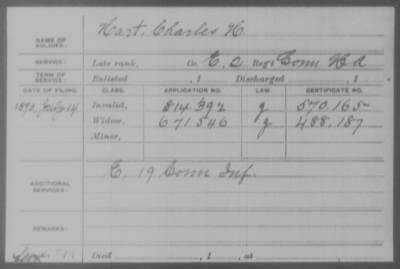 NAME OF SOLDIER: Hart, Charles H.
SERVICE: Late rank, Co. E, D, Reg't Conn H A
TERM OF SERVICE: Enlisted , 1 Discharged , 1
DATE OF FILING. CLASS. APPLICATION NO. LAW. CERTIFICATE NO.
1890, July 14 Invalid, 814.392 g 570.165
Widow, 671546 g 488.187
Minor,
ADDITIONAL SERVICES: E, 19 Conn Inf.
REMARKS:
Died , 1 , at